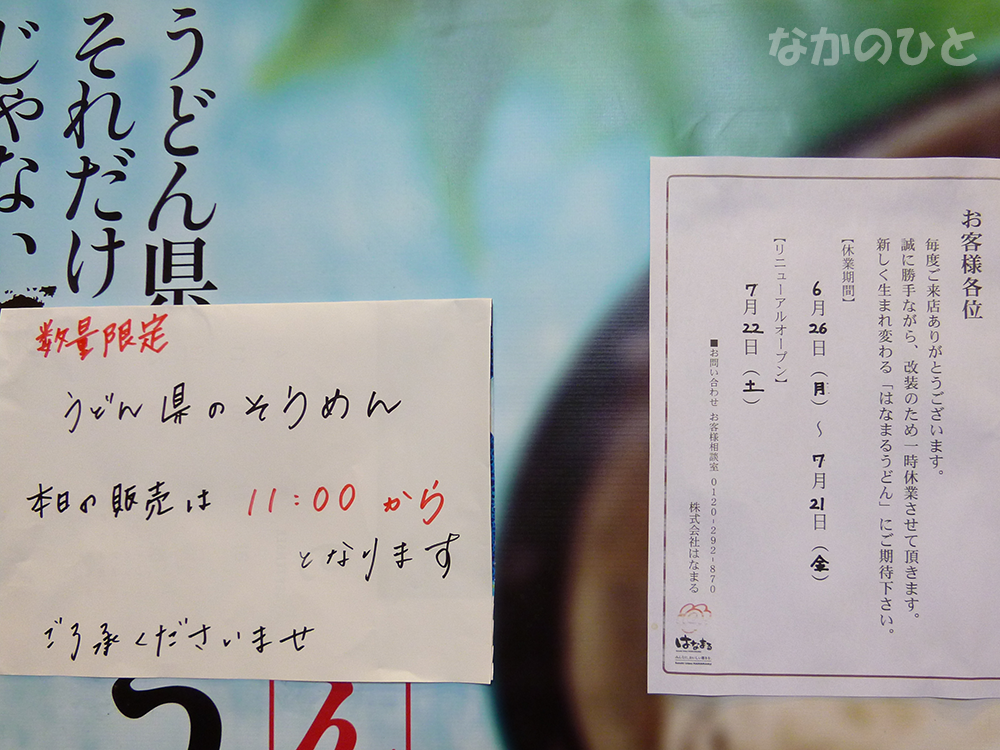 なかのひと
うどん県
それだけ
じゃない
数量限定
うどん県のそうめん
本日の販売は 11:00 から
となります
ご了承くださいませ
お客様各位
毎度ご来店ありがとうございます。
誠に勝手ながら、改装のため一時休業させて頂きます。
新しく生まれ変わる「はなまるうどん」にご期待下さい。
【休業期間】
6月26日(月)~7月21日(金)
【リニューアルオープン】
7月22日(土)
■お問い合わせ お客様相談室 0120-292-870
株式会社はなまる
はなまる
ん